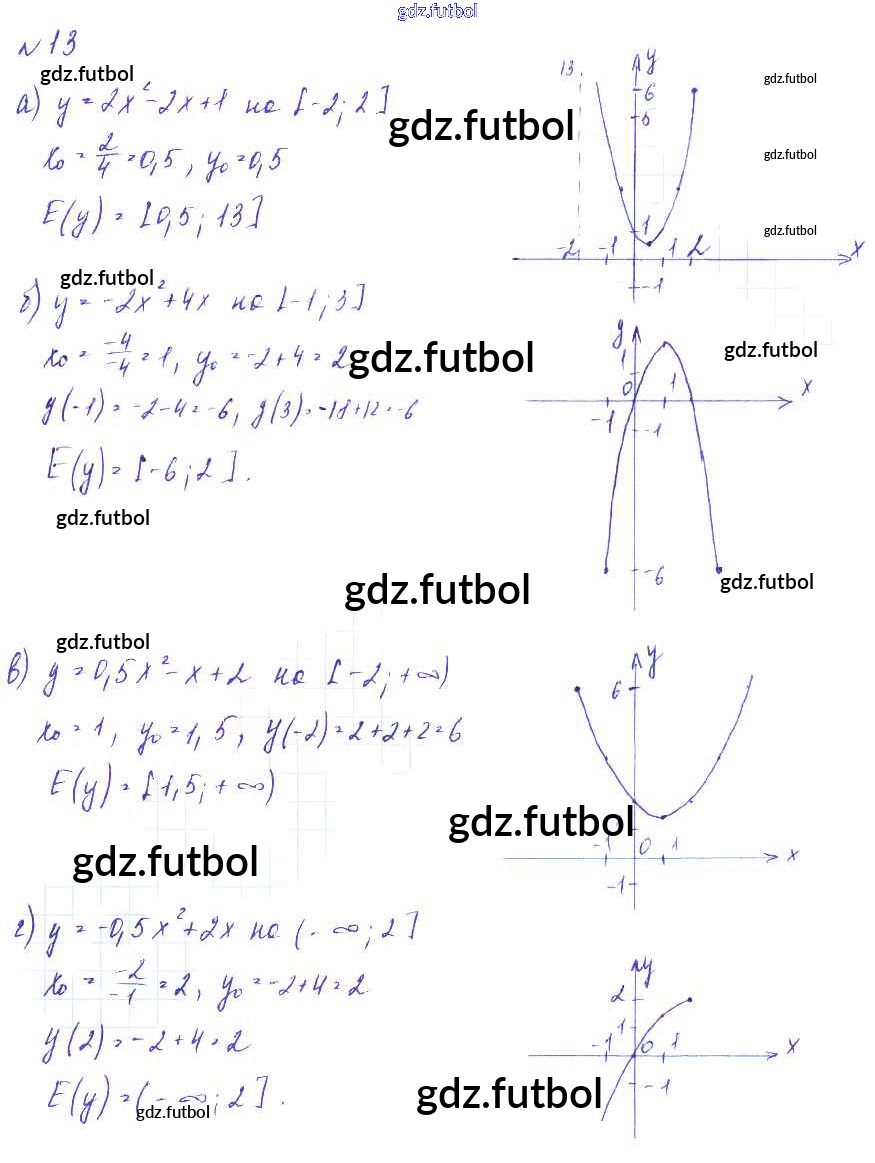 gdz.futbol
№13
gdz.futbol
а) y = 2x²-2x+1 на [-2; 2]
gdz.futbol
x₀ = 2/4 = 0,5, y₀ = 0,5
E(y) = [0,5; 13]
13.
y
gdz.futbol
6
5
gdz.futbol
1
gdz.futbol
-2 -1 1 2 x
-1
gdz.futbol
б) y = -2x²+4x на [-1; 3]
x₀ = -4/-4 = 1, y₀ = -2+4 = 2
gdz.futbol
y(-1) = -2-4 = -6, y(3) = -18+12 = -6
E(y) = [-6; 2].
gdz.futbol
y
1
gdz.futbol
0 1 x
-1 -1
-6
gdz.futbol
gdz.futbol
gdz.futbol
в) y = 0,5x²-x+2 на [-2; +∞)
x₀ = 1, y₀ = 1,5, y(-2) = 2+2+2 = 6
E(y) = [1,5; +∞)
gdz.futbol
gdz.futbol
y
6
-1 0 1 x
-1
г) y = -0,5x²+2x на (-∞; 2]
x₀ = -2/-1 = 2, y₀ = -2+4 = 2
y(2) = -2+4 = 2
E(y) = (-∞; 2].
gdz.futbol
gdz.futbol
y
2
1
-1 0 1 x
-1